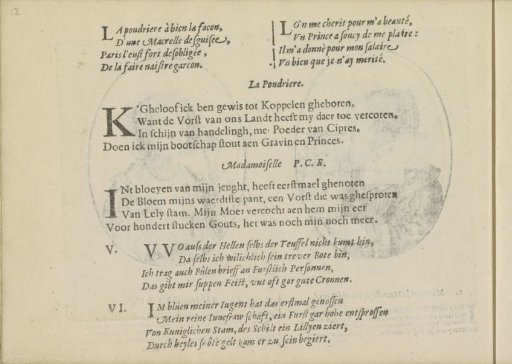 12
LA poudriere à bien la facon,
D'une Macrelle desguisee,
Paris l'eust fort desobligée,
De la faire naistre garcon.
LOn me cherit pour m'a beauté,
Vn Prince a soucy de me plaire:
Il m'a donnè pour mon salaire
Vo bien que je n'ay merité.
La Poudriere.
K'Gheloof ick ben gewis tot Koppelen gheboren,
Want de Vorst van ons Landt heeft my daer toe vercoren,
In schijn van handelingh, me Poeder van Cipres,
Doen ick mijn bootschap stout aen Gravin en Princes.
Madamoiselle P. C. R.
INt bloeyen van mijn jeught, heeft eerstmael ghenoten
De Bloem mijns waerdste pant, een Vorst die was ghesproten
Van Lely stam. Mijn Moer vercocht aen hem mijn eer
Voor hondert stucken Gouts, het was noch min noch meer.
V. VVO auss der Hellen selbs der Teuffel nicht kumt hin,
Da selbs ich wilichlich sein trever Bote bin,
Ich trag auch Bulen brieff an Furstlich Personnen,
Das gibt mir suppen Feist, vnt aft gar gute Cronnen.
VI. IM blüen meiner iugent hat das erstmal genossen
Mein reine Iuncfraw schafft, ein Furst gar hohe entsprossen
Von Kuniglichen Stam, des Schilt ein Lillyen ziert,
Durch gelt kam er zu sein begiert.